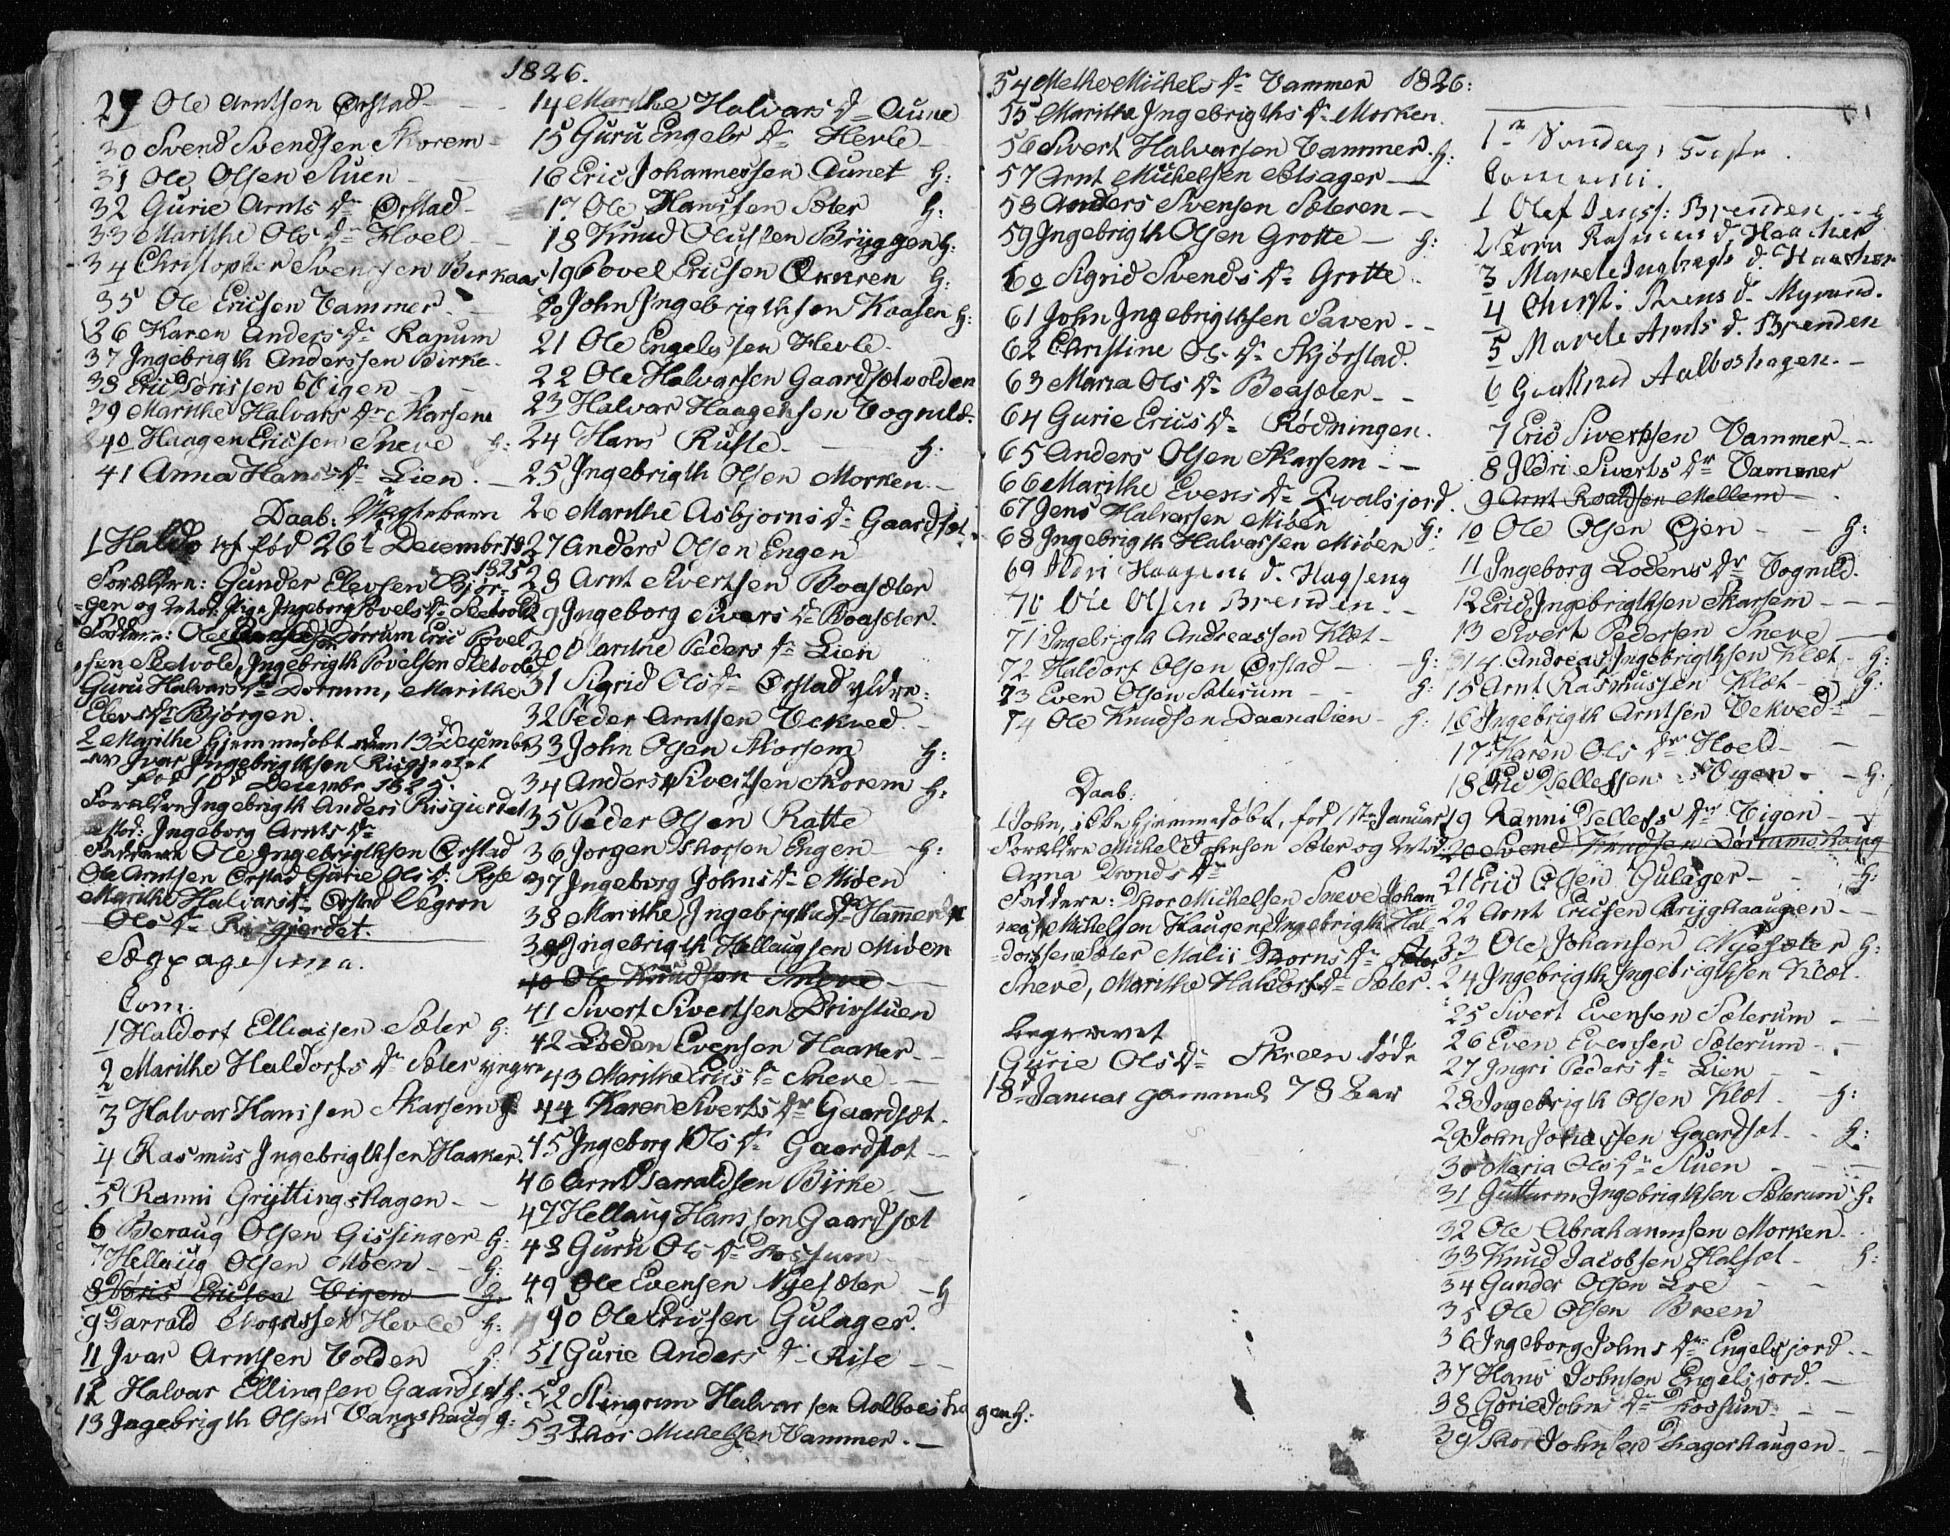 1826.
29 Ole Arntsen Ørstad
30 Svend Svendsen Skorem
31 Ole Olsen Stuen
32 Gurie Arnts Dr Ørstad
33 Marithe Ols Dr Hoel
34 Christopher Svendsen Birkaas
35 Ole Ericsen Vammer
36 Karen Anders Dr Rapum
37 Ingebrigth Anderssen Birke
38 Eric Torissen Vigen
39 Marithe Halvars Dr Skarsem
40 Haagen Ericsen Sneve H:
41 Anna Hans Dr Lien
Daab: Uægtebarn
1 Haldo født 26t Decembr
1825
Forældre: Gunder Elevsen Bjør-
gen og Pige Ingeborg Povels Dr Sletvold
Faddere: Ole Dørrum Eric Povel-
sen Sletvold, Ingebrigth Povelsen Sletvold
Guru Halvars Dr Dørrum, Marithe
Elevs Dr Bjørgen.
2 Marithe hjemmedøbt den 13 December
av Ivar Ingebrigthsen Risgjerdet
fød 10de Decembr 1825.
Forældre Ingebrigth Anders Risgjerdet
Ingeborg Arnts Dr
Faddere Ole Ingebrigthsen Ørstad
Ole Arntsen Ørstad Gurie Ols Dr Rise
Marithe Halvars Dr Ørstad Segron
Ols Dr Risgjerdet.
Com:
1 Haldorf Elliassen Sæter H:
2 Marithe Haldorfs Dr Sæter yngre
3 Halvar Hansen Skarsem
4 Rasmus Ingebrigthsen Haaker
5 Ranni Gryttingshagen
6 Beraug Olsen Gissinger H:
7 Hellaug Olsen Møen H:
8 Toris Ericsen Vigen H:
9 Tarrald Hevle H:
11 Ivar Arntsen Volden H:
12 Halvar Ellingsen Gaardsæt H:
13 Ingebrigth Olsen Vangshaug H:
14 Marithe Halvars Dr Aune
15 Guru Engels Dr Hevle
16 Eric Johannessen Aunet H:
17 Ole Hansen Sæter H:
18 Knud Olufsen Bryggen H:
19 Povel Ericsen H:
20 John Ingebrigthsen Kaasen H:
21 Ole Engelssen Hevle
22 Ole Halvarsen Gaardsætvolden
23 Halvar Haagensen Vognild
24 Hans Rusle H:
25 Ingebrigth Olsen Morken
26 Marithe Asbjorns Dr Gaardsæt
27 Anders Olsen Engen
28 Arnt Sivertsen Boasæter
29 Ingeborg Sivers Dr Boasæter
30 Marithe Peders Dr Lien
31 Sigrid Ols Dr Ørstad yldre:
32 Peder Arntsen Vekved
33 John Olsen Skorsem H:
34 Anders Sivertsen Skorem H:
35 Peder Olsen Ratte
36 Jorgen Thorsen Engen H:
37 Ingeborg Johns Dr Miøen
38 Marithe Ingebrigths Dr
39 Ingebrigth Hellaugsen Miøen
40 Ole Knudsen Sneve
41 Sivert Sivertsen Drivstuen
42 Loden Evensen Haaker
43 Marithe Erics Dr Sneve
44 Karen Siverts Dr Gaardsæt
45 Ingeborg Ols Dr Gaardsæt
46 Arnt Tarraldsen Birke
47 Hellaug Hanssen Gaardsæt
48 Guru Ols Dr Rossum
49 Ole Evensen Nyesæter H
50 Ole Ericsen Gulager
51 Gurie Anders Dr Rise
52 Stingrum Halvarsen Aalboeshagen H:
53 Thor Michelsen Vammer
54 Methe Michels Dr Vammer 1826:
55 Marithe Ingebrigths Dr Morken
56 Sivert Halvarsen Vammer H:
57 Arnt Michelsen Ælsager
58 Anders Svensen Sæteren
59 Ingebrigth Olsen Grotte H:
60 Sigrid Svends Dr Grotte
61 John Ingebrigthsen Saven
62 Christine Ols Dr Skjørstad
63 Maria Ols Dr Boasæter
64 Gurie Erics Dr Rødningen
65 Anders Olsen Skarsem
66 Marithe Evens Dr Qvalsjord
67 Jens Halvarsen Miøen H:
68 Ingebrigth Halvarsen Miøen
69 Ildri Haagens D. Hagseng
70 Ole Olsen Brenden
71 Ingebrigth Andreassen Klæt
72 Haldorf Olsen Ørstad H:
73 Even Olsen Sæterum H:
74 Ole Knudsen H:
Daab:
1 John, hjemmedøbt, fød 1ste Januar
Forældre Michel Johnsen Sæter og
Anna Tronds Dr
Faddere: Thor Michelsen Sneve Johan-
Michelsen Haugen, Ingebrigth Hal-
dorfsen Sæter Malii Thors Dr
Sneve, Marithe Haldorfs Dr Sæter
Begravet
Gurie Ols Dr Skreen døde
18 Januar gammel 78 Aar
1te Søndag i Faste
Comuni.
1 Olef Jenss: Brenden H
2 Rasmus D. Haacher
3 Marete Ingbrigts D. Haacher
4 Christi: Svens D.
5 Marete Arnts D. Brenden
6 Gudbrand Aalboshagen
7 Eric Sivertsen Vammer
8 Ildri Siverts Dr Vammer
9 Arnt Roaldsen Mellem
10 Ole Olsen Ejen H:
11 Ingeborg Lodens Dr Vognild
12 Eric Ingebrigthsen Skarsem
13 Sivert Pedersen Sneve
14 Andreas Ingebrigthsen Klæt H:
15 Arnt Rasmussen Klæt H:
16 Ingebrigth Arntsen Vekved
17 Karen Ols Dr Hoel
18 Eric Tellefsen Vigen H:
19 Ranni Tellefs Dr Vigen
20 Svend Knudsen Dørrumshaug
21 Eric Olsen Gulager H:
22 Arnt Ericsen Kryghaaugen
23 Ole Johansen Nyesæter H:
24 Ingebrigth Ingebrigthsen Klæt
25 Sivert Evensen Sæterum
26 Even Evensen Sæterum
27 Ingri Peders Dr Lien
28 Ingebrigth Olsen Klæt H:
29 John Johassen Gaardsæt H:
30 Maria Ols Dr Stuen
31 Guttorm Ingebrigthsen Sæterum H:
32 Ole Abrahammsen Morken
33 Knud Jacobsen Halsæt H:
34 Gunder Olsen Loe
35 Ole Olsen Breen
36 Ingeborg Johns Dr Engelsjord
37 Hans Johnsen Engelsjord
38 Gorie Johns Dr Rossum
39 Thor Johnsen Hagerhaugen